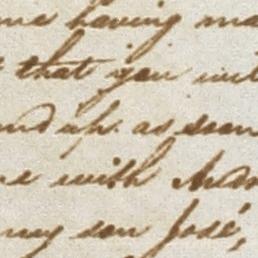 me having ma
that you wil
and up as soon
e with Andr
my son José,